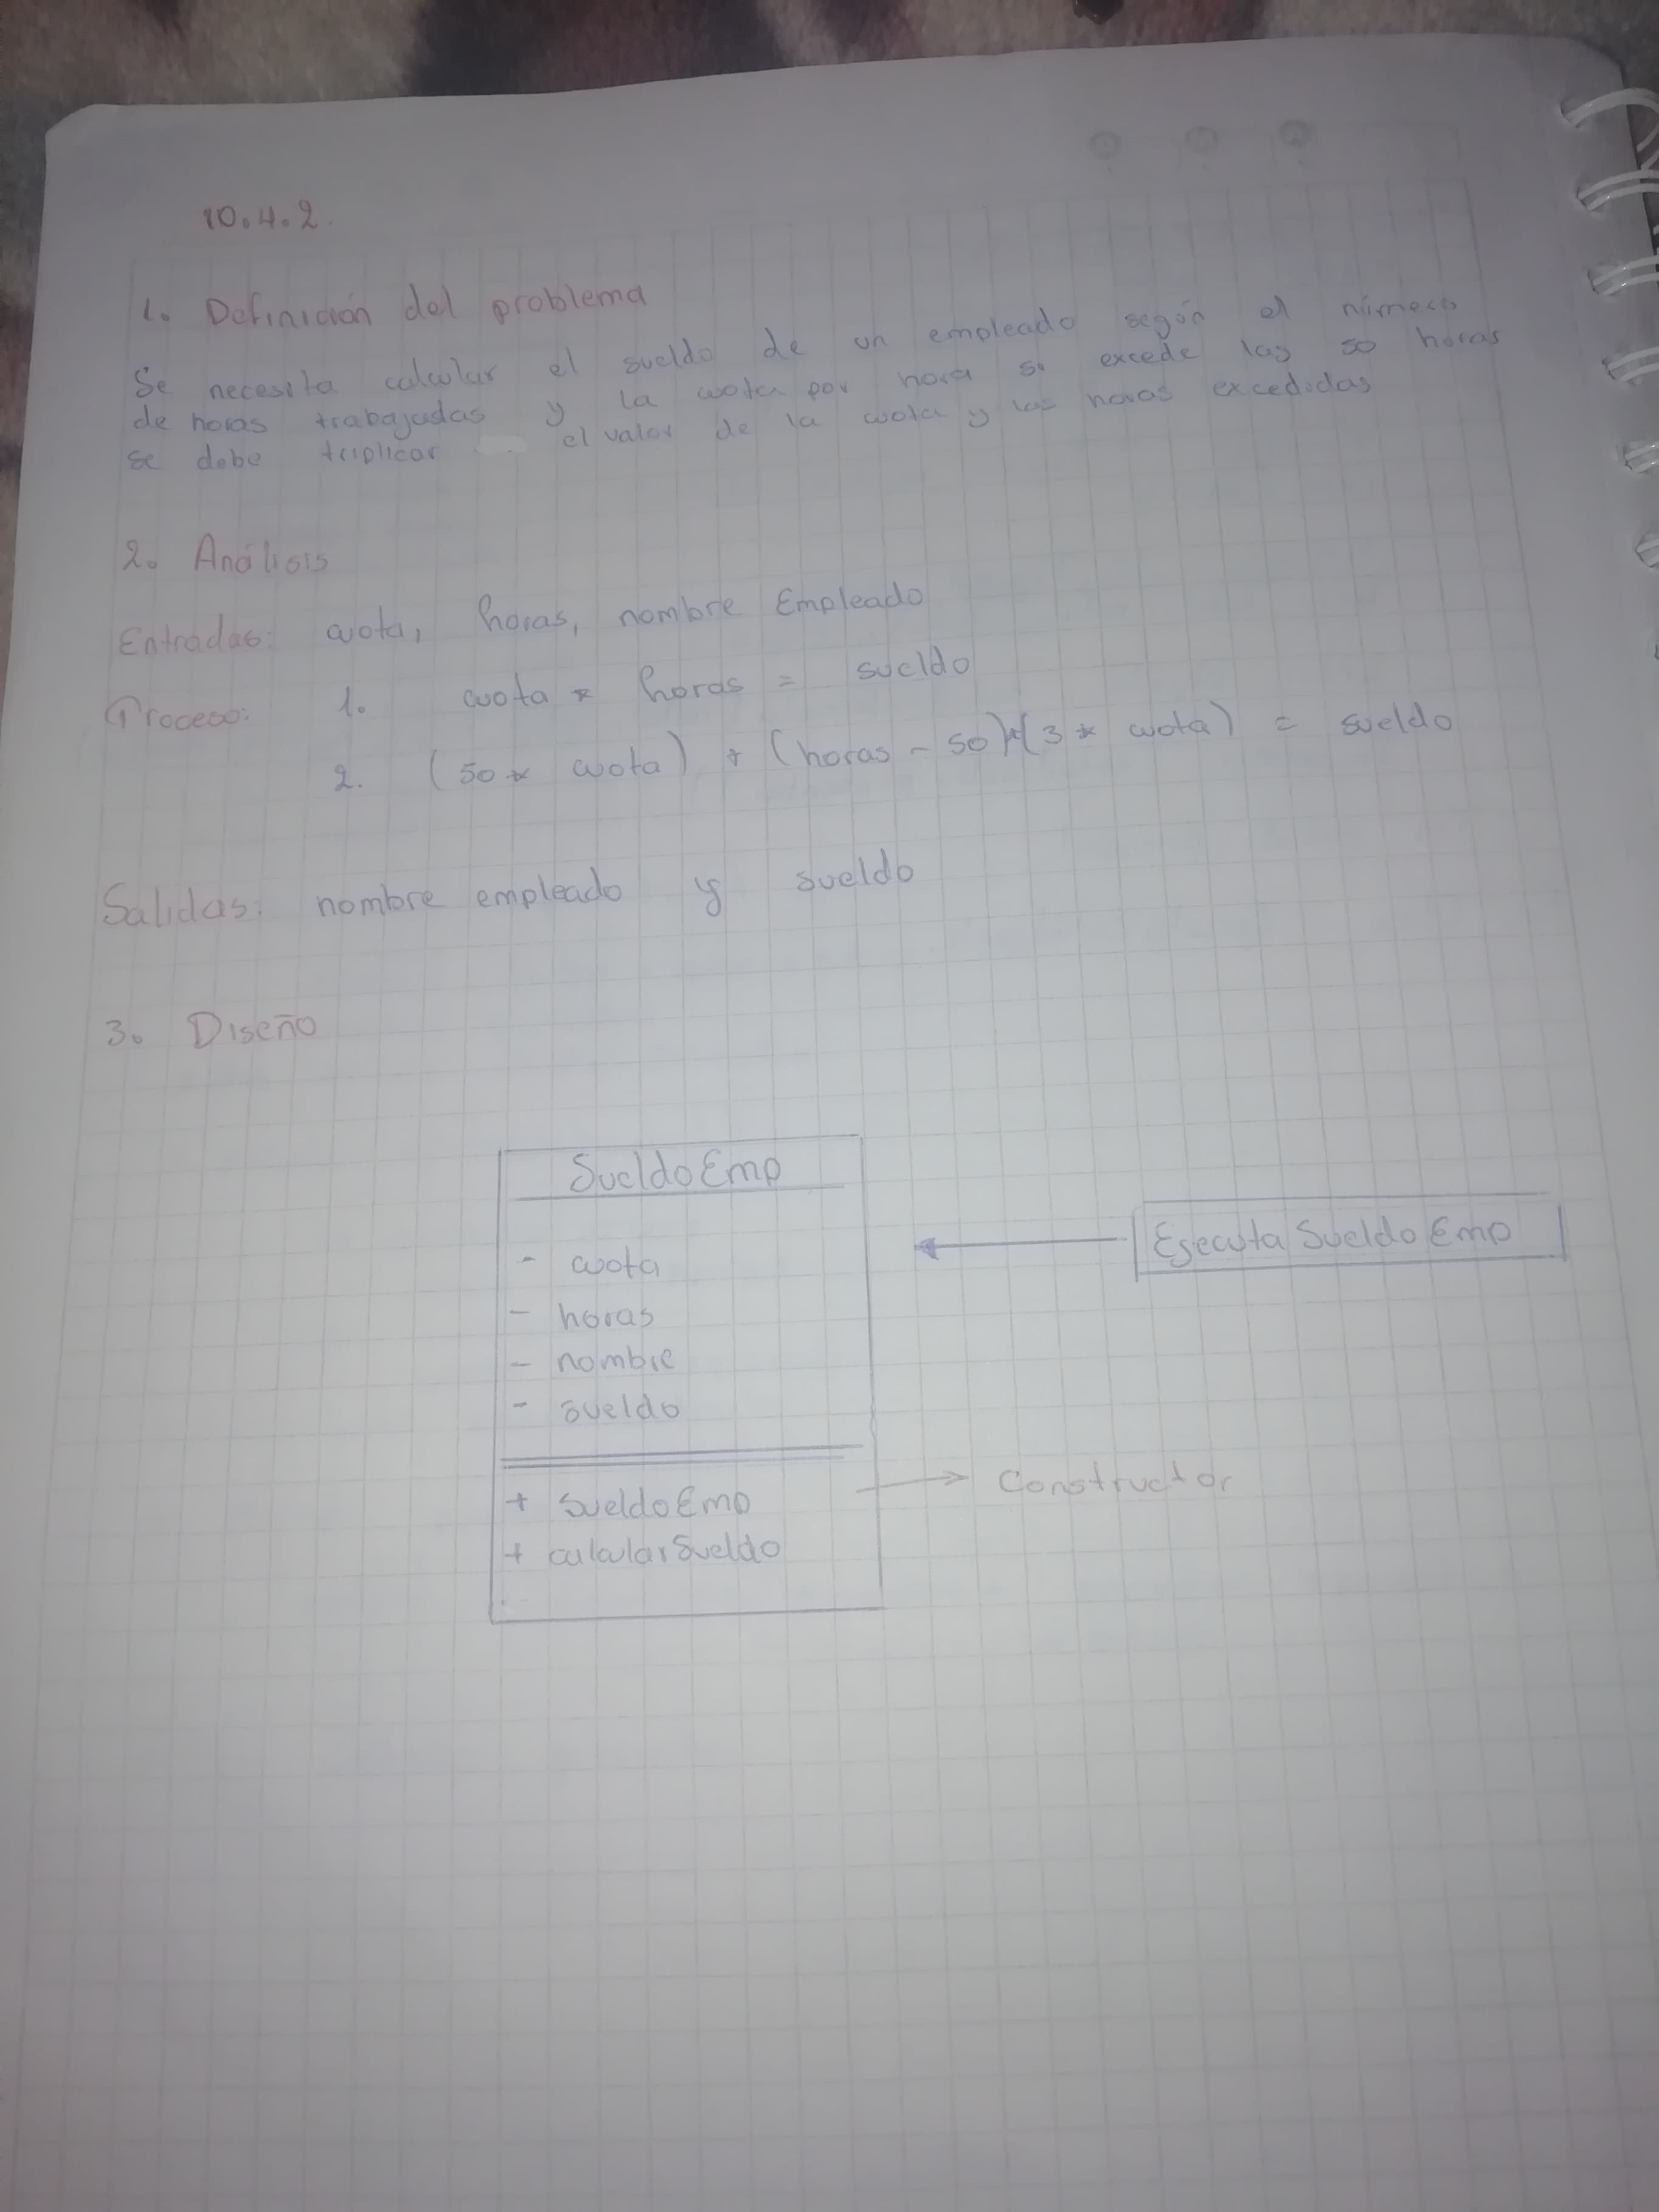 10.4.2.
1. Definición del problema
Se necesita calcular el sueldo de un empleado según el número
de horas trabajadas y la cuota por hora si excede las 50 horas
se debe triplicar el valor de la cuota y las horas excedidas
2. Análisis
Entradas: cuota, horas, nombre Empleado
Proceso: 1. cuota * horas = sueldo
2. (50 * cuota) + (horas - 50)*(3 * cuota) = sueldo
Salidas: nombre empleado y sueldo
3. Diseño
SueldoEmp
- cuota
- horas
- nombre
- sueldo
+ sueldoEmp
+ calcularSueldo
Ejecuta Sueldo Emp
Constructor